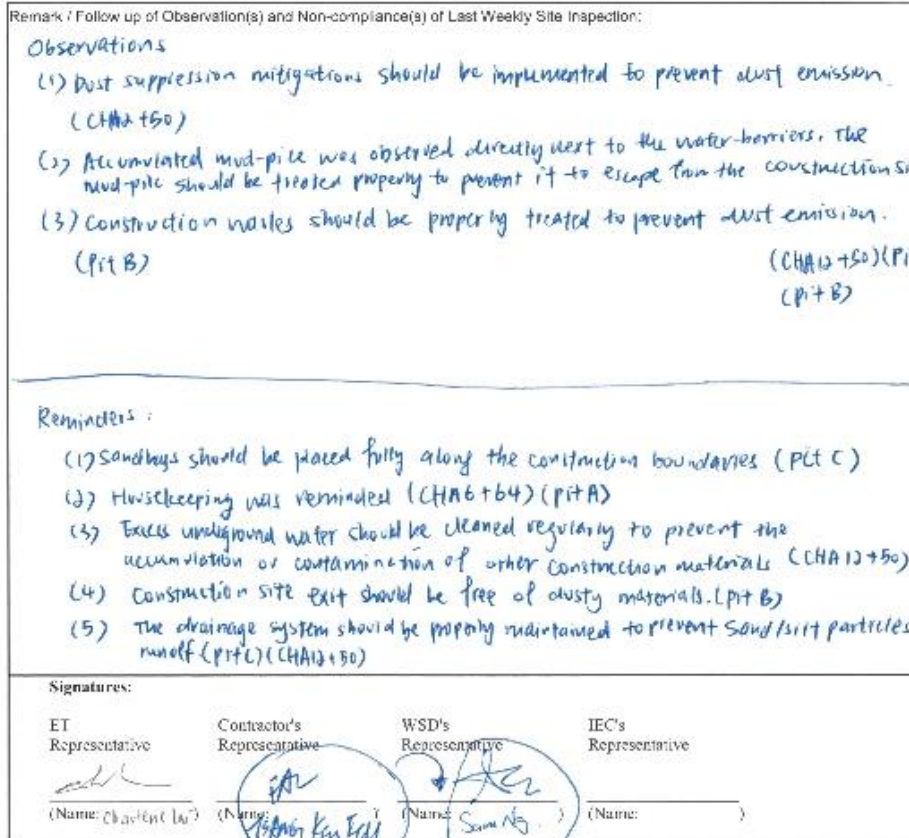 Remark / Follow up of Observation(s) and Non-compliance(s) of Last Weekly Site Inspection:
Observations
(1) Dust suppression mitigations should be implemented to prevent dust emission.
(CHA12+50)
(2) Accumulated mud-pile was observed directly next to the water-barriers. The
mud-pile should be treated properly to prevent it to escape from the construction
(3) Construction wastes should be properly treated to prevent dust emission.
(Pit B)
(CHA12+50)
(Pit B)
Reminders:
(1) Sandbags should be placed fully along the construction boundaries (Pit C)
(2) Housekeeping was reminded (CHA6+64) (Pit A)
(3) Excess underground water should be cleaned regularly to prevent the
accumulation or contamination of other construction materials (CHA12+50)
(4) Construction site exit should be free of dusty materials. (Pit B)
(5) The drainage system should be properly maintained to prevent sand/silt particles
runoff (Pit C) (CHA12+50)
Signatures:
ET Contractor's WSD's IEC's
Representative Representative Representative Representative
(Name: Charlene ) (Name: ) (Name: Sam Ng ) (Name: )